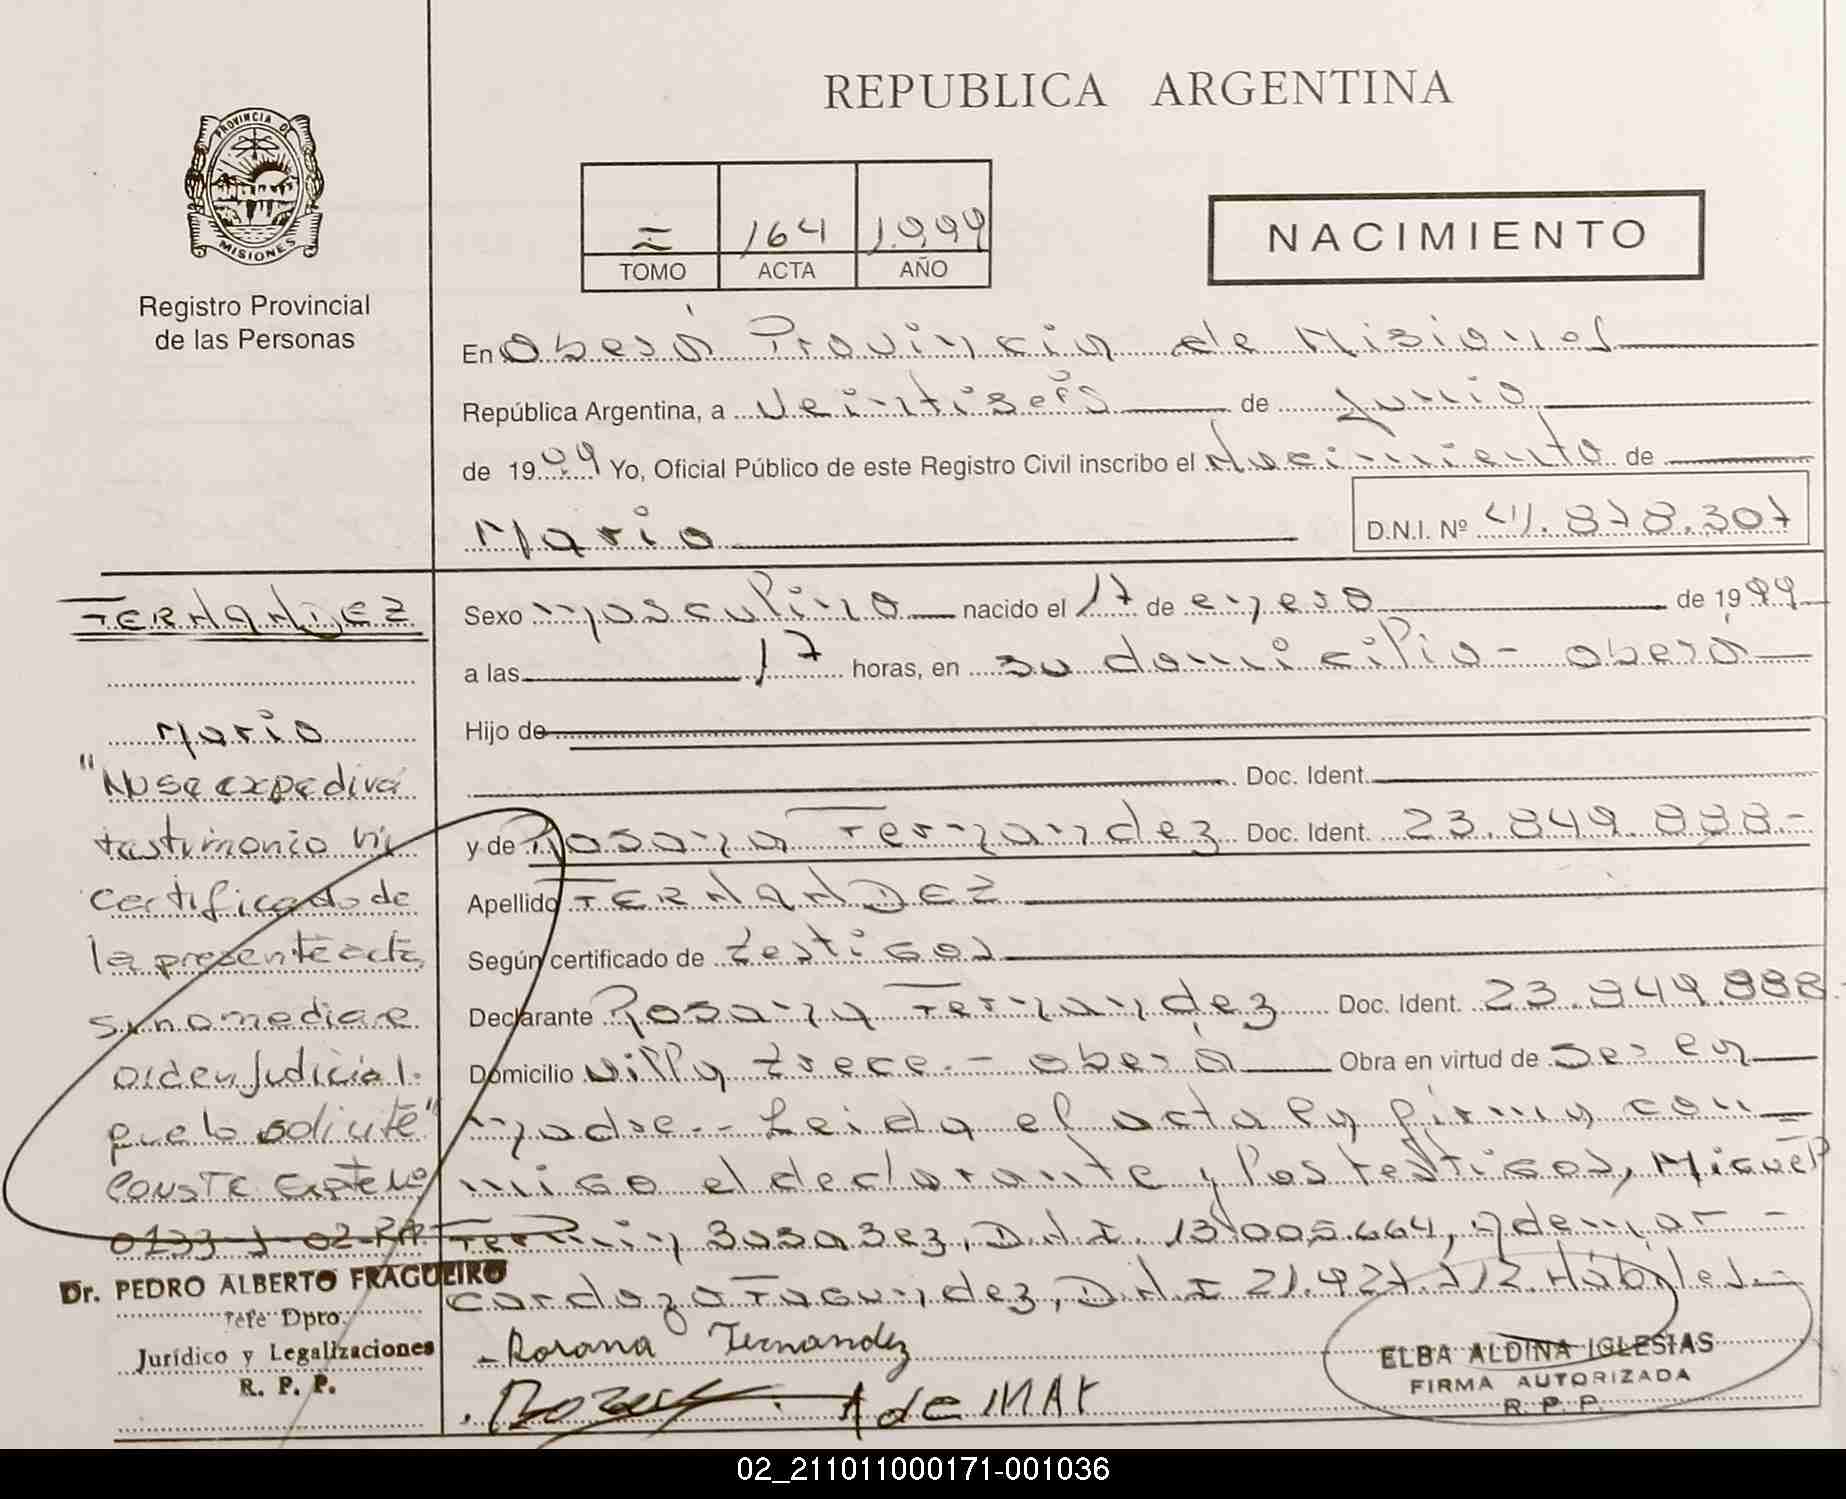 REPUBLICA ARGENTINA
PROVINCIA DE
MISIONES
Registro Provincial
de las Personas
= 164 1.999
TOMO ACTA AÑO
NACIMIENTO
En Oberá Provincia de Misiones
República Argentina, a Veintiseis de Junio
de 1999 Yo, Oficial Público de este Registro Civil inscribo el Nacimiento de
Mario
D.N.I. Nº 41.878.307
FERNANDEZ
Mario
"No se expedirá
testimonio ni
certificado de
la presente acta
si no mediare
orden Judicial
que lo solicite"
CONSTE Expte Nº
0133-J-02-RP
Dr. PEDRO ALBERTO FRAGUEIRO
Jefe Dpto.
Jurídico y Legalizaciones
R. P. P.
Sexo masculino nacido el 17 de enero de 1999
a las 17 horas, en su domicilio - oberá
Hijo de
Doc. Ident.
y de Rosana Fernandez Doc. Ident. 23.849.888-
Apellido FERNANDEZ
Según certificado de testigos
Declarante Rosana Fernandez Doc. Ident. 23.949.888-
Domicilio Villa trece - oberá Obra en virtud de ser la
madre.- Leida el acta la firma con
migo el declarante y los testigos, Miguel
Fermin D.N.I. 13.005.664, Ademar -
Cardozo Fagundez, D.N.I 21.927.712. Hábiles.-
- Rosana Fernandez
AdeMAr
ELBA ALDINA IGLESIAS
FIRMA AUTORIZADA
R. P. P.
02_211011000171-001036